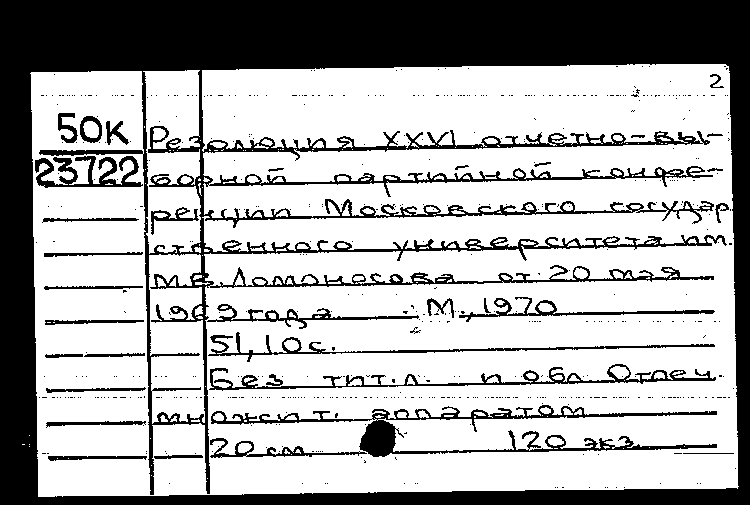 2
50К
Резолюция XXVI отчетно-вы-
23722
борной партийной конфе-
ренции Московского государ
ственного университета им.
М.В. Ломоносова от 20 мая
1969 года. М., 1970
51, 10 с.
Без тит. л. и обл. Отпеч.
множит. аппаратом
20 см. 120 экз.